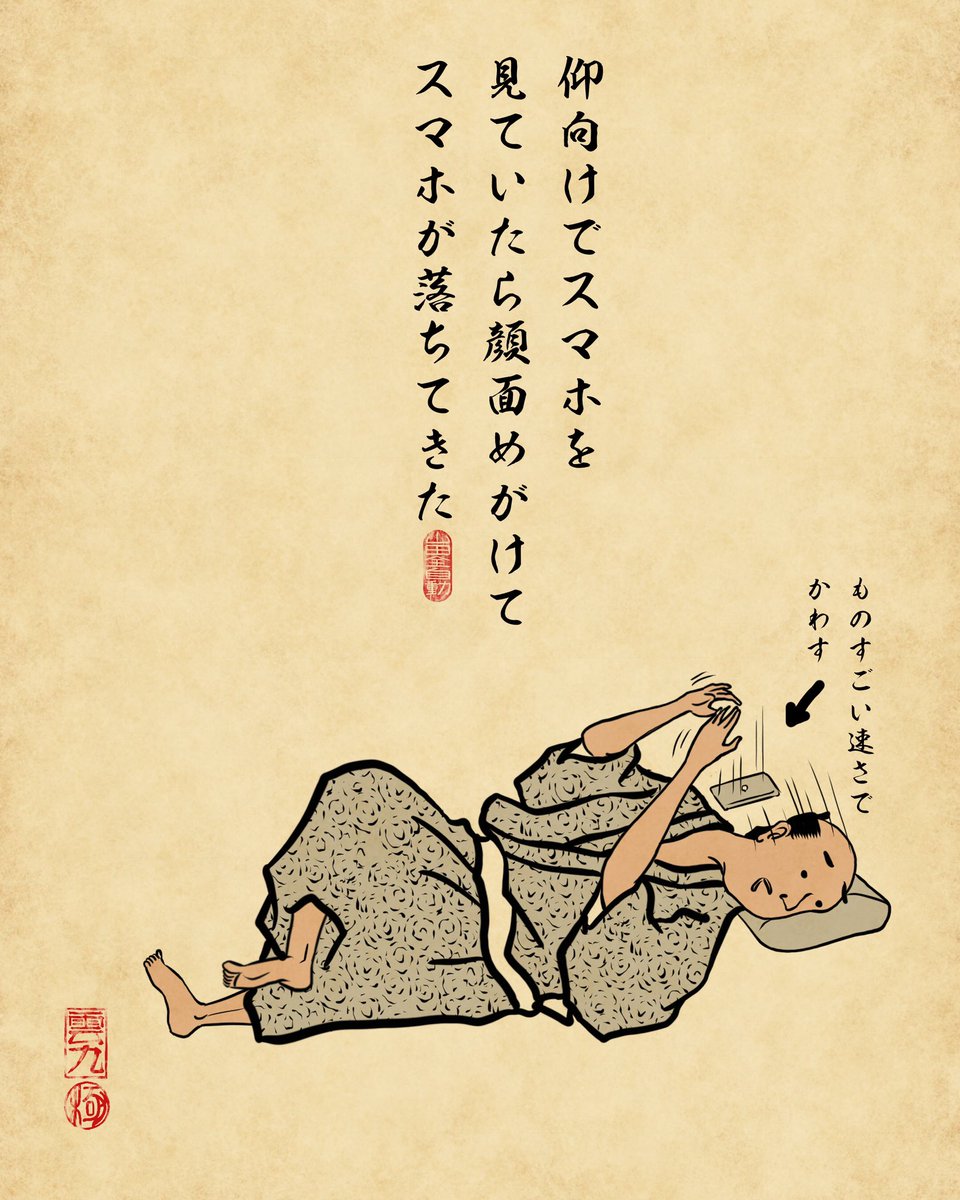 仰向けでスマホを
見ていたら顔面めがけて
スマホが落ちてきた
ものすごい速さで
かわす